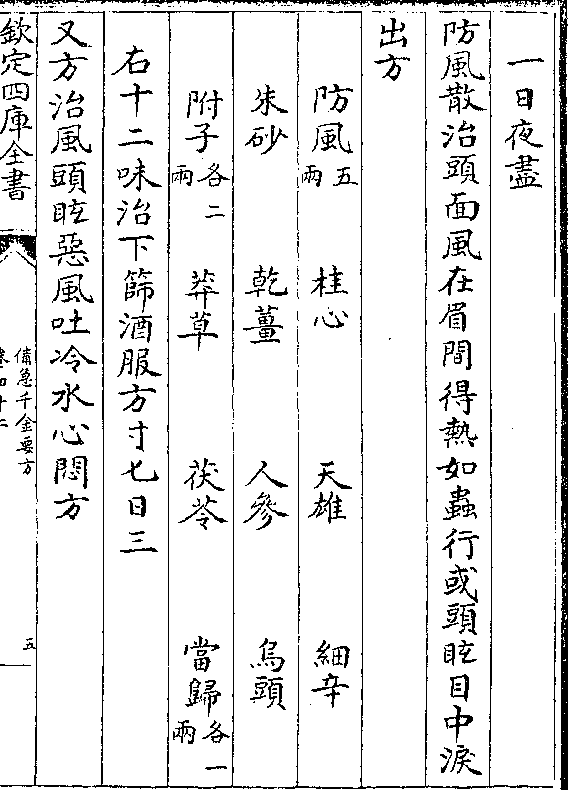 一日夜盡
防風散治頭面風在眉間得熱如蟲行或頭眩目中淚
出方
防風五兩 桂心 天雄 細辛
朱砂 乾薑 人參 烏頭
附子各二兩 莽草 茯苓 當歸各一兩
右十二味治下篩酒服方寸七日三
又方治風頭眩惡風吐冷水心悶方
欽定四庫全書
備急千金要方
五